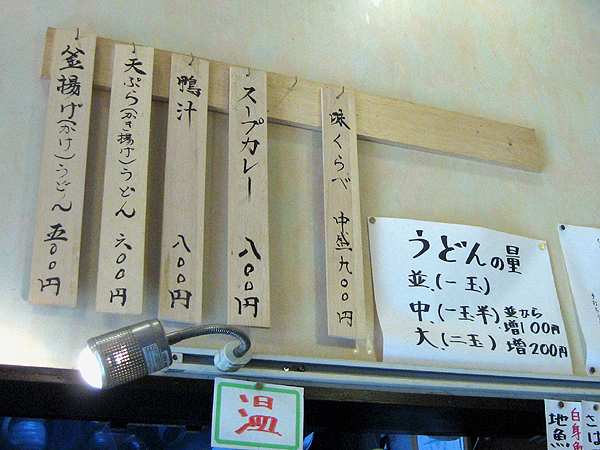 釜揚げ(かけ)うどん 五00円
天ぷら(かき揚げ)うどん 六00円
鴨汁 八00円
スープカレー 八00円
味くらべ 中盛 九00円
うどんの量
並(一玉)
中(一玉半)並なら増100円
大(二玉)増200円
温
地魚
白身魚
さば